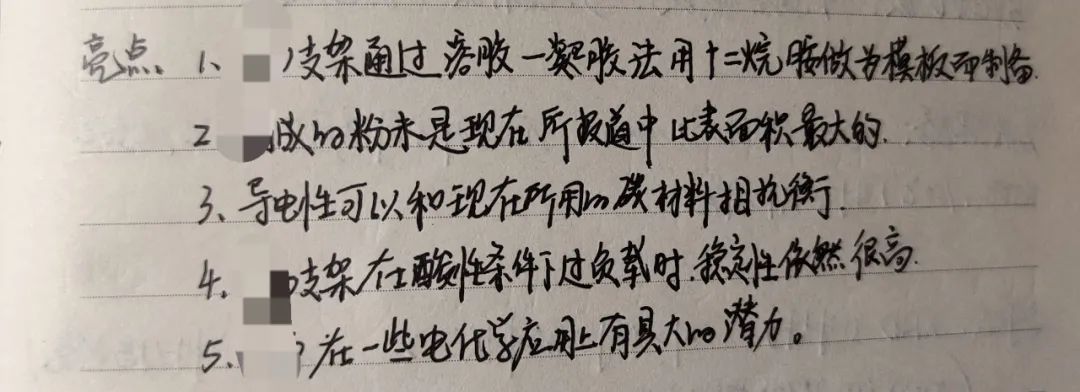 亮点。1、支架通过溶胶一凝胶法用十二烷胺做为模板而制备.
2 成的粉末是现在所报道中比表面积最大的.
3、导电性可以和现在所用的碳材料相抗衡.
4.支架在酸性条件下过负载时.稳定性依然很高.
5.在一些电化学应用上有具大的潜力。